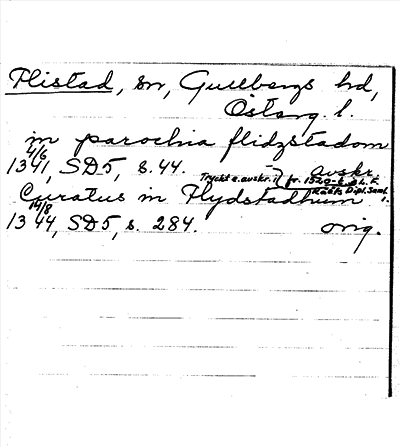 Flistad, sn, Gullbergs hd,
Österg. l.
in parochia flidzstadom
4/6
1341, SD5, s. 44. Avskr.
Tryckt e. avskr. i fr. 1520-t. Ö.L.F.
Curatus in Flydstadhum
14/8
1344, SD5, s. 284. orig.